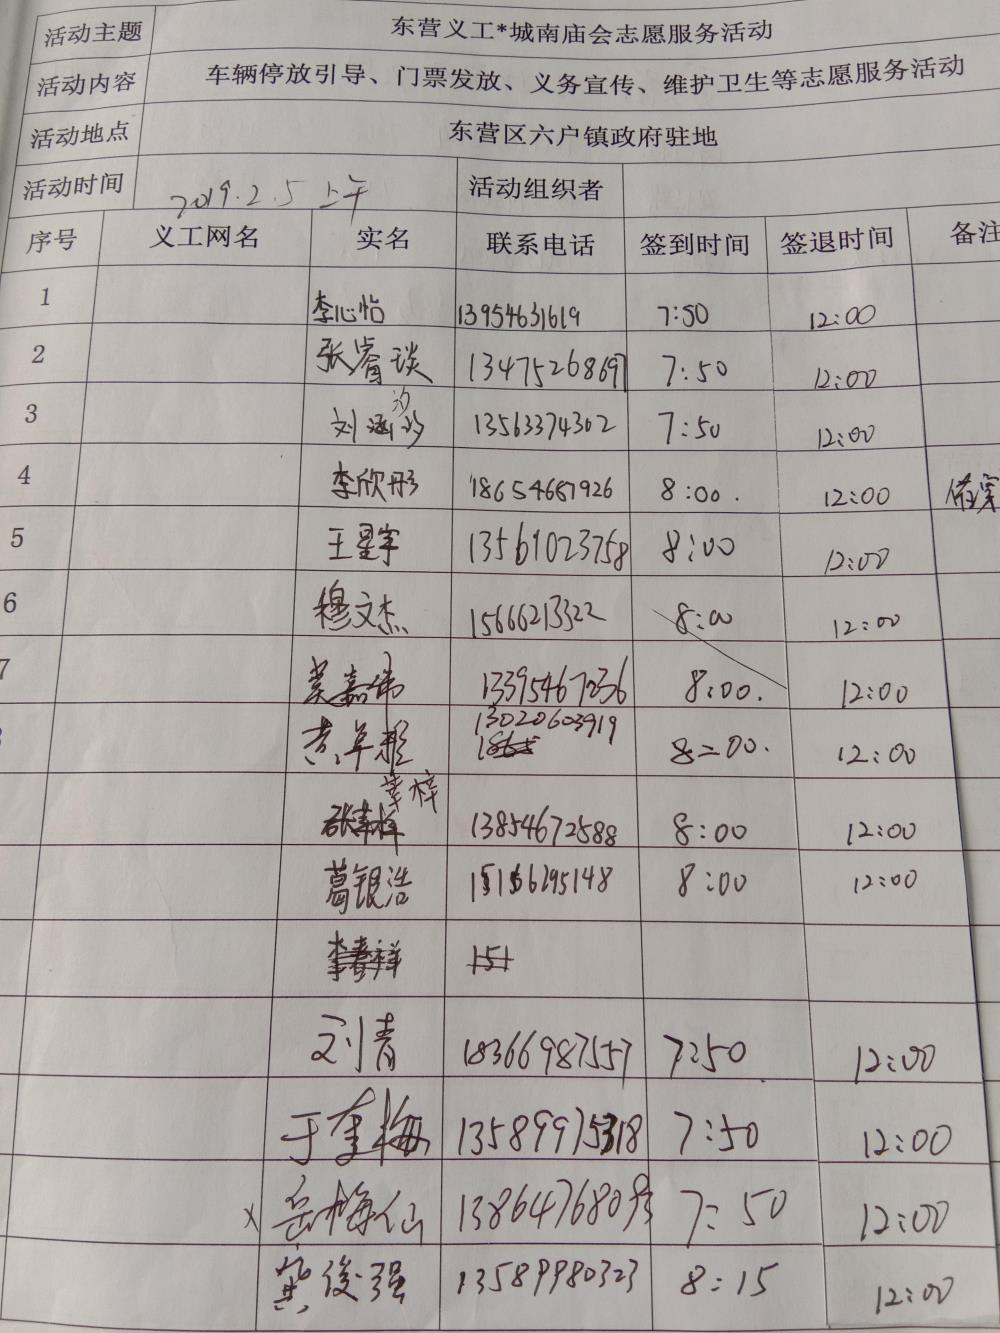 活动主题 东营义工*城南庙会志愿服务活动
活动内容 车辆停放引导、门票发放、义务宣传、维护卫生等志愿服务活动
活动地点 东营区六户镇政府驻地
活动时间 2019.2.5 上午 活动组织者
序号 义工网名 实名 联系电话 签到时间 签退时间 备注
1 李心怡 13954631619 7:50 12:00
2 张睿琰 13475268697 7:50 12:00
3 刘涵汐 13563374302 7:50 12:00
4 李欣彤 18654687926 8:00. 12:00
5 王星宇 13561023758 8:00 12:00
6 穆文杰 15666213322 8:00 12:00
7 嘉伟 13395467236 8:00. 12:00
13020603919 8:00. 12:00
张幸梓 13854672588 8:00 12:00
葛银浩 15166295148 8:00 12:00
李春祥 151
刘青 18366987557 7:50 12:00
于奎梅 13589975318 7:50 12:00
x 岳梅仙 13864768093 7:50 12:00
龚俊强 13589980323 8:15 12:00